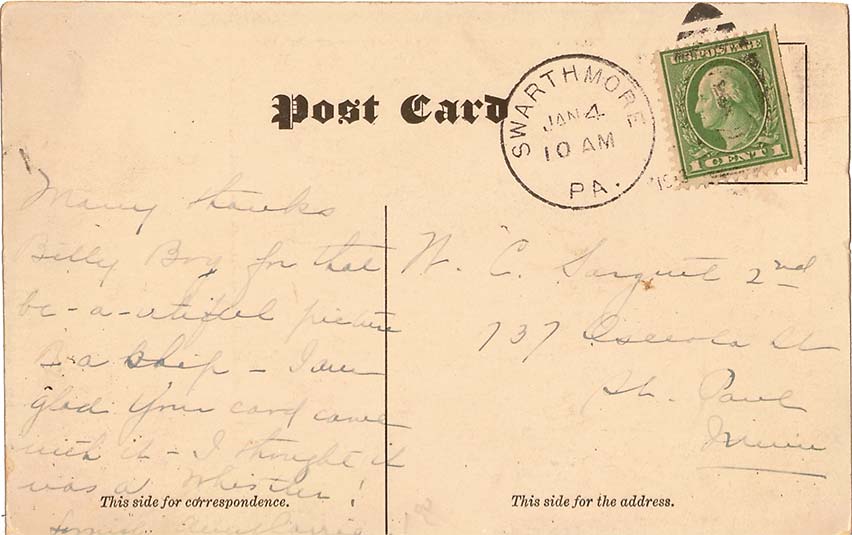 Post Card
SWARTHMORE
JAN 4
10 AM
PA.
U.S. POSTAGE
1 CENT 1
Many thanks
Billy Boy for that
be-a-utiful picture
a ship - I am
glad your card came
with it - I thought it
was a Whistler!
This side for correspondence.
W. C. Sargent 2nd
737 Osceola St
St. Paul
Minn
This side for the address.